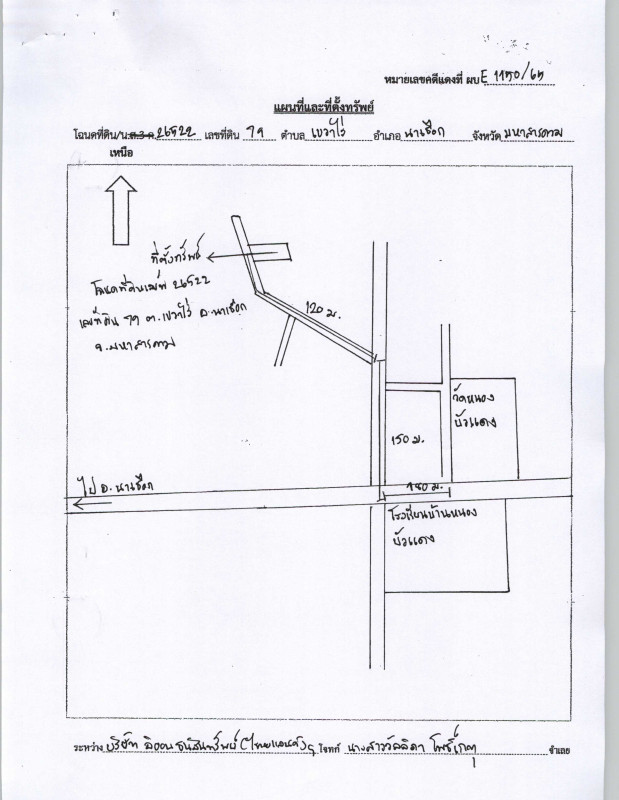 หมายเลขคดีแดงที่ ผบE 1150/65
แผนที่และที่ตั้งทรัพย์
โฉนดที่ดิน/น.ส.3 ก 26522 เลขที่ดิน 79 ตำบล เขวาไร่ อำเภอ นาเชือก จังหวัด มหาสารคาม
เหนือ
ที่ตั้งทรัพย์
โฉนดที่ดินเลขที่ 26522
เลขที่ดิน 79 ต.เขวาไร่ อ.นาเชือก
จ.มหาสารคาม
120 ม.
วัดหนอง
บัวแดง
150 ม.
ไป อ.นาเชือก
180 ม.
โรงเรียนบ้านหนอง
บัวแดง
ระหว่าง บริษัท อิออน ธนสินทรัพย์ (ไทยแลนด์)ฯ โจทก์ นางสาววัลลิดา จำเลย